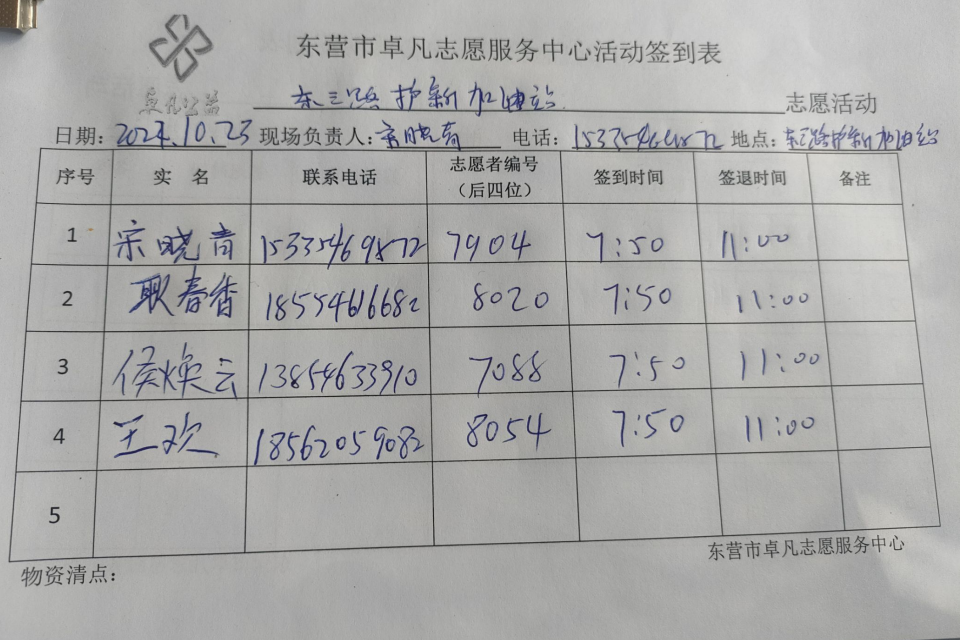 东营市卓凡志愿服务中心活动签到表
卓凡公益
东三路护新加油站 志愿活动
日期：2024.10.23 现场负责人：宋晓青 电话：15335469872 地点：东三路护新加油站
序号 实 名 联系电话 志愿者编号（后四位） 签到时间 签退时间 备注
1 宋晓青 15335469872 7904 7:50 11:00
2 耿春香 18554616682 8020 7:50 11:00
3 侯焕云 13854633910 7088 7:50 11:00
4 王欢 18562059082 8054 7:50 11:00
5
东营市卓凡志愿服务中心
物资清点：